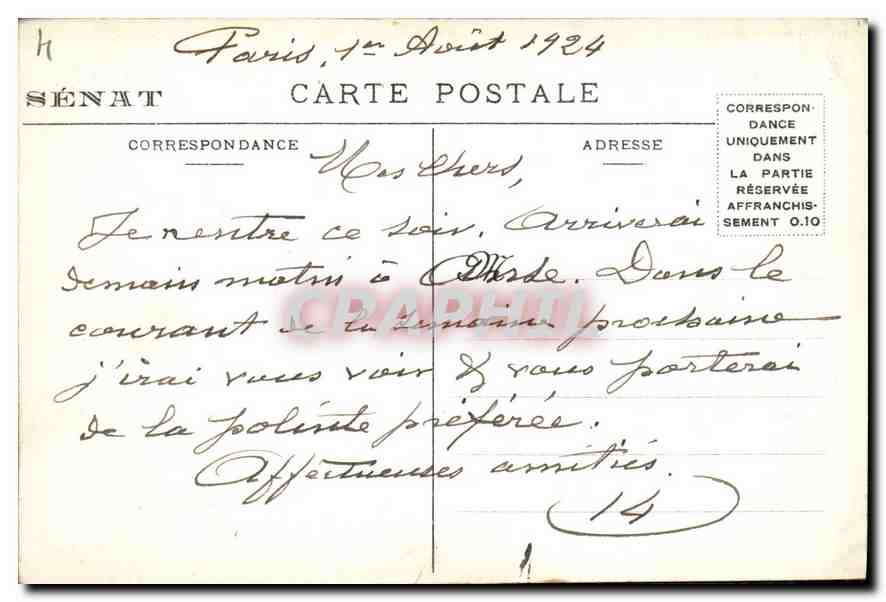 h
Paris, 1er Août 1924
SÉNAT
CARTE POSTALE
CORRESPONDANCE
ADRESSE
CORRESPON-
DANCE
UNIQUEMENT
DANS
LA PARTIE
RÉSERVÉE
AFFRANCHIS-
SEMENT 0.10
Mes chers,
Je rentre ce soir. Arriverai
demain matin à. Dans le
courant de la semaine prochaine
j'irai vous voir & vous porterai
de la préférée.
Affectueuses amitiés.
14
CPAPHIL